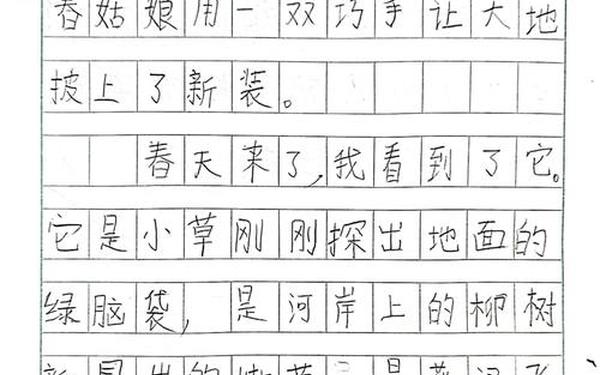 春姑娘用一双巧手让大地
披上了新装。
春天来了,我看到了它。
它是小草刚刚探出地面的
绿脑袋,是河岸上的柳树